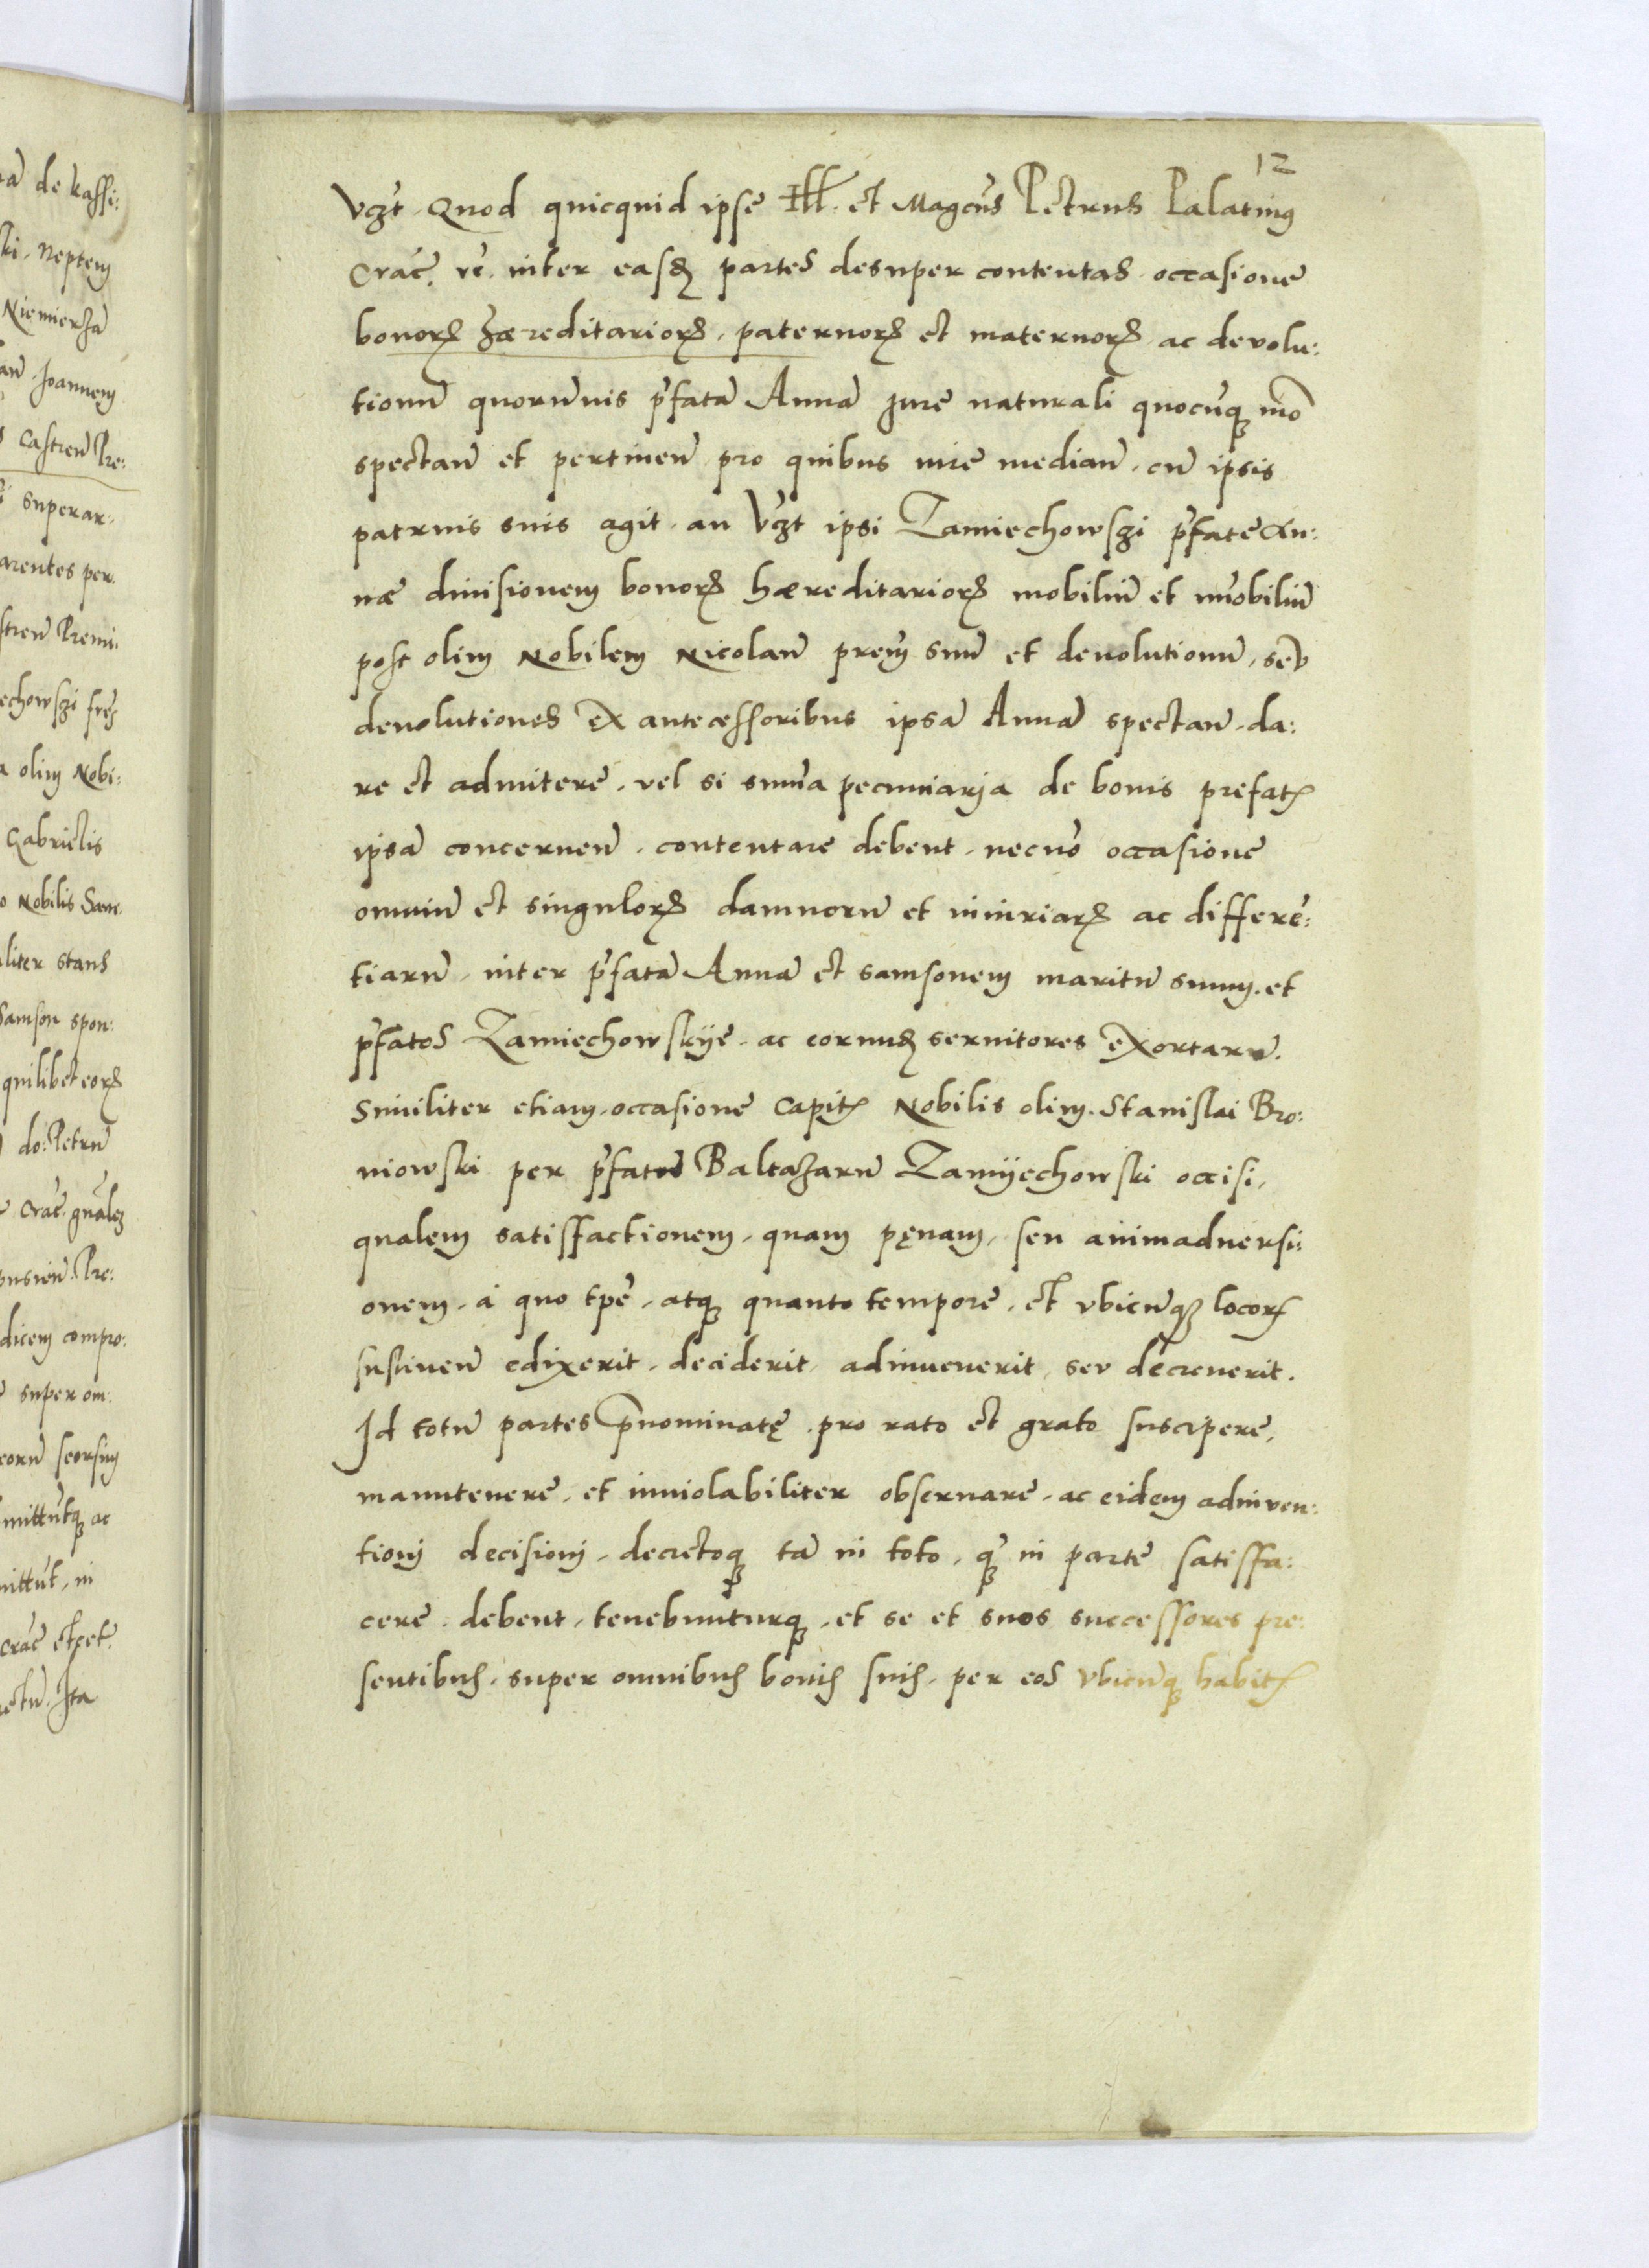 12
Vczt. Quod quicquid ipse Ill. et Magcus Petrus Palatinus
Crac. rc. inter easdem partes desuper contentas occasione
bonorum haereditariorum, paternorum et maternorum ac devolu:
tionũ quorũuis p̃fatã Annã jure naturali quocũq mõ
spectañ et pertineñ pro quibus iure mediañ, cũ ipsis
patruis suis agit. an Vczt ipsi Zamiechowszi p̃fate An:
nae diuisionem bonorum haereditariorum mobiliũ et im̃obiliũ
post olim Nobilem Nicolaũ prem̃ suũ et deuolutionũ, seu
deuolutiones ex antecessoribus ipsã Annã spectañ da:
re et admitere, vel si sum̃a pecuniarja de bonis prefatis
ipsã concerneñ. contentare debent. necnõ occasione
omniũ et singulorum damnorũ et iniuriarum ac differẽ:
tiarũ, inter p̃fatã Annã et samsonem maritũ suum. et
p̃fatos Zamiechowskye. ac eorundem seruitores exortarũ.
Similiter etiam occasione capitis Nobilis olim Stanislai Bro:
niowski per p̃fatũ Baltazarũ Zamyechowski occisi,
qualem satisffactionem, quam pęnam, seu animaduersi:
onem, a quo tpẽ, atq quanto tempore, et vbicũq locorum
sustineñ edixerit, deciderit, adinuenerit, seu decreuerit.
Id totũ partes p̃nominatę pro rato et grato suscipere,
manutenere, et inuiolabiliter obseruare, ac eidem adinven:
tionj decisionj, decretoq tã in toto, q̃ in parte satisffa:
cere debent, tenebunturq, et se et suos successores pre:
sentibus, super omnibus bonis suis, per eos vbicũq habitis